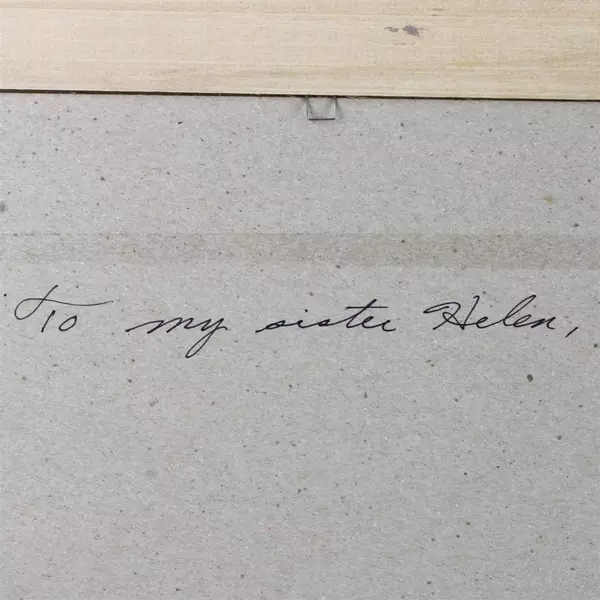 To my sister Helen,